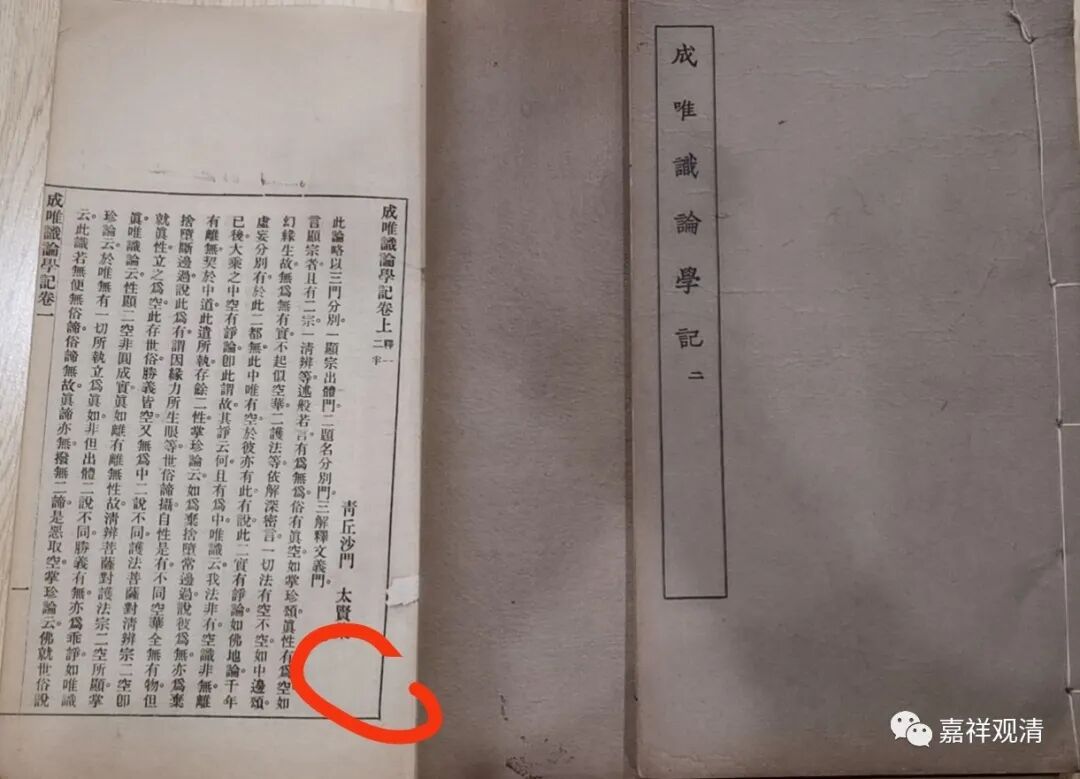 成唯識論學記 二
成唯識論學記卷上 釋一
青丘沙門 太賢
此論略以三門分別。一顯宗出體門。二題名分別門。三解釋文義門。
言顯宗者且有二宗。一清辨等述般若言有爲無爲俗有眞空。如掌珍頌眞性有爲空如
幻緣生故無爲無有實不起似空華。二護法等依解深密言一切法有空不空。如中邊頌
虛妄分別有於此二都無此中唯有空於彼亦有此。有說此二實有諍論。如佛地論千年
已後大乘之中空有諍論。卽此謂故。其諍云何。且有爲中唯識云我法非有空識非無離
有離無契於中道。此遣所執存餘二性。掌珍論云如爲棄捨墮常邊過說彼爲無亦爲棄
捨墮斷邊過說此爲有。謂因緣力所生眼等世俗諦攝自性是有。不同空華全無有物。但
就眞性立之爲空。此存世俗勝義皆空。又無爲中二說不同。護法菩薩對清辨宗二空卽
眞。唯識論云性顯二空非圓成實眞如離有離無性故。清辨菩薩對護法宗二空所顯。掌
珍論云於唯無有一切所執立爲眞如。非但出體二說不同。勝義有無亦爲乖諍。如唯識
云。此識若無便無俗諦俗諦無故眞諦亦無。撥無二諦是惡取空。掌珍論云佛就世俗說
成唯識論學記卷一 一
嘉祥观清